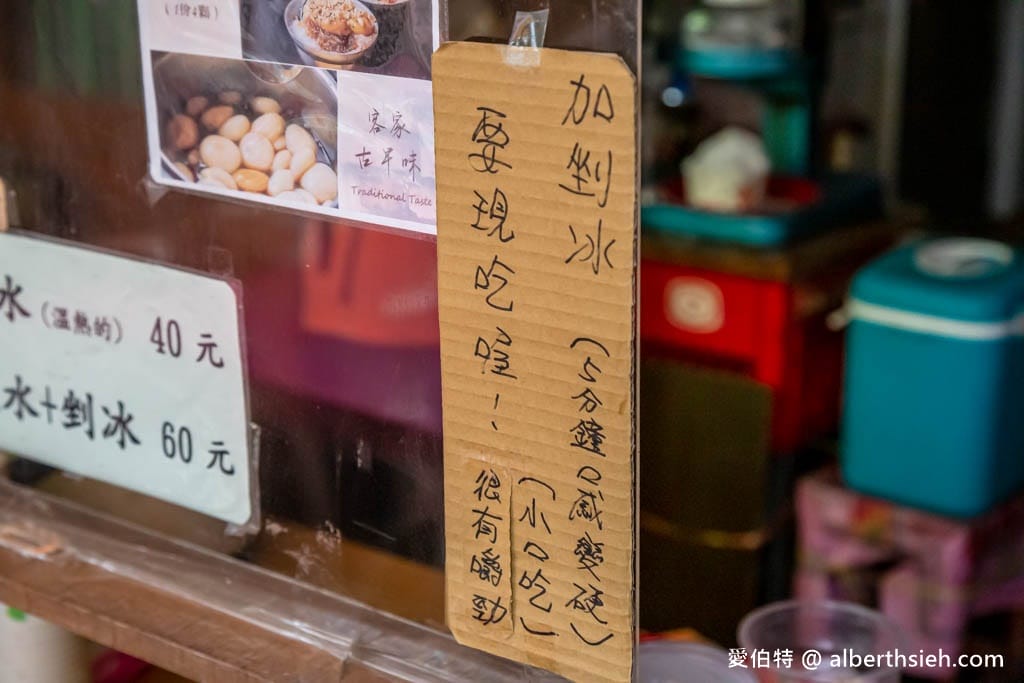 (1份4顆)
客家
古早味
Traditional Taste
水(溫熱的) 40元
水+剉冰 60元
加剉冰 (5分鐘口感變硬)
要現吃喔!!
(小口吃)
很有嚼勁
愛伯特 @ alberthsieh.com